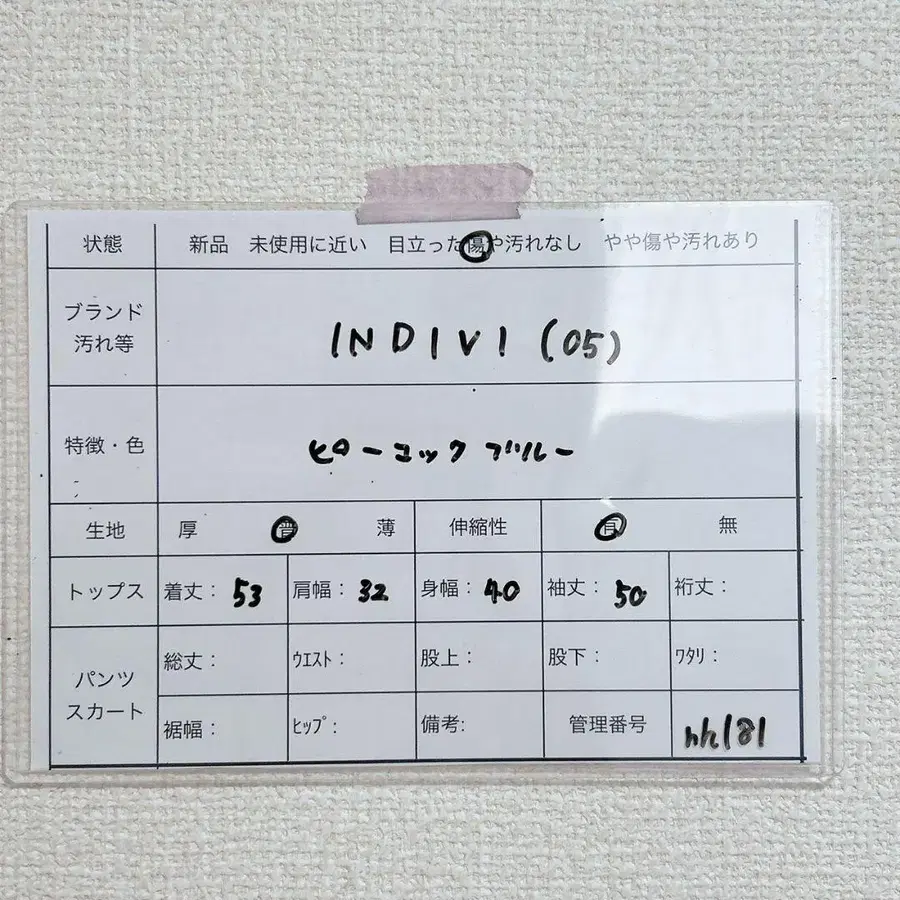 状態 新品 未使用に近い 目立った傷や汚れなし やや傷や汚れあり
ブランド
汚れ等
INDIVI (05)
特徴・色
ピーコックブルー
生地 厚 普 薄 伸縮性 有 無
トップス 着丈: 53 肩幅: 32 身幅: 40 袖丈: 50 裄丈:
パンツ
スカート
総丈: ウエスト: 股上: 股下: ワタリ:
裾幅: ヒップ: 備考: 管理番号 hh181